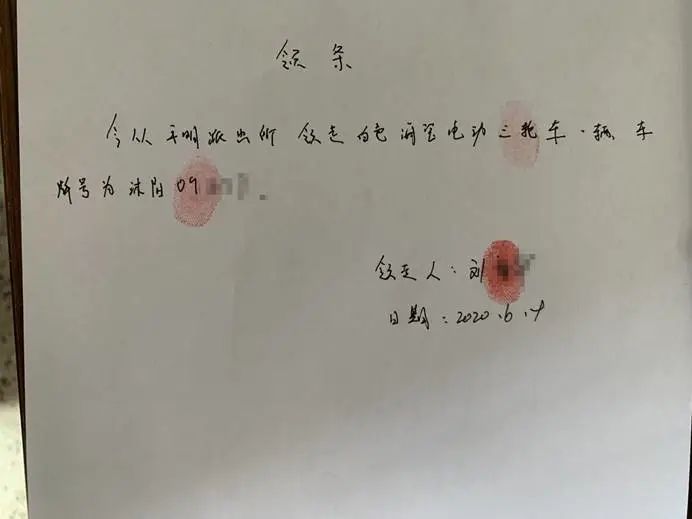 领条
今从平明派出所 领走白色 电动三轮车一辆 车
牌号为沭阳09
领走人：刘
日期：2020.6.4